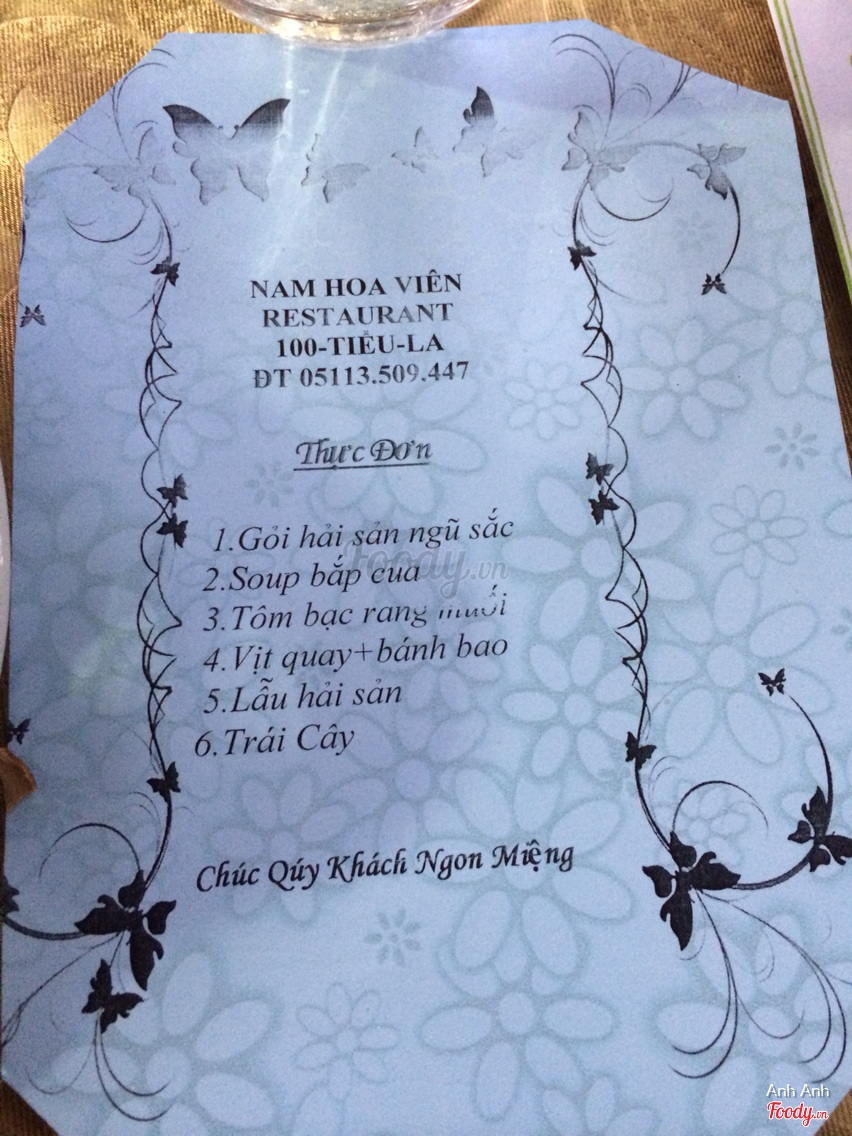 NAM HOA VIÊN
RESTAURANT
100-TIỂU-LA
ĐT 05113.509.447
Thực Đơn
1.Gỏi hải sản ngũ sắc
2.Soup bắp cua
3.Tôm bạc rang muối
4.Vịt quay+bánh bao
5.Lẫu hải sản
6.Trái Cây
Chúc Qúy Khách Ngon Miệng
Foody.vn
Anh Anh
Foody.vn